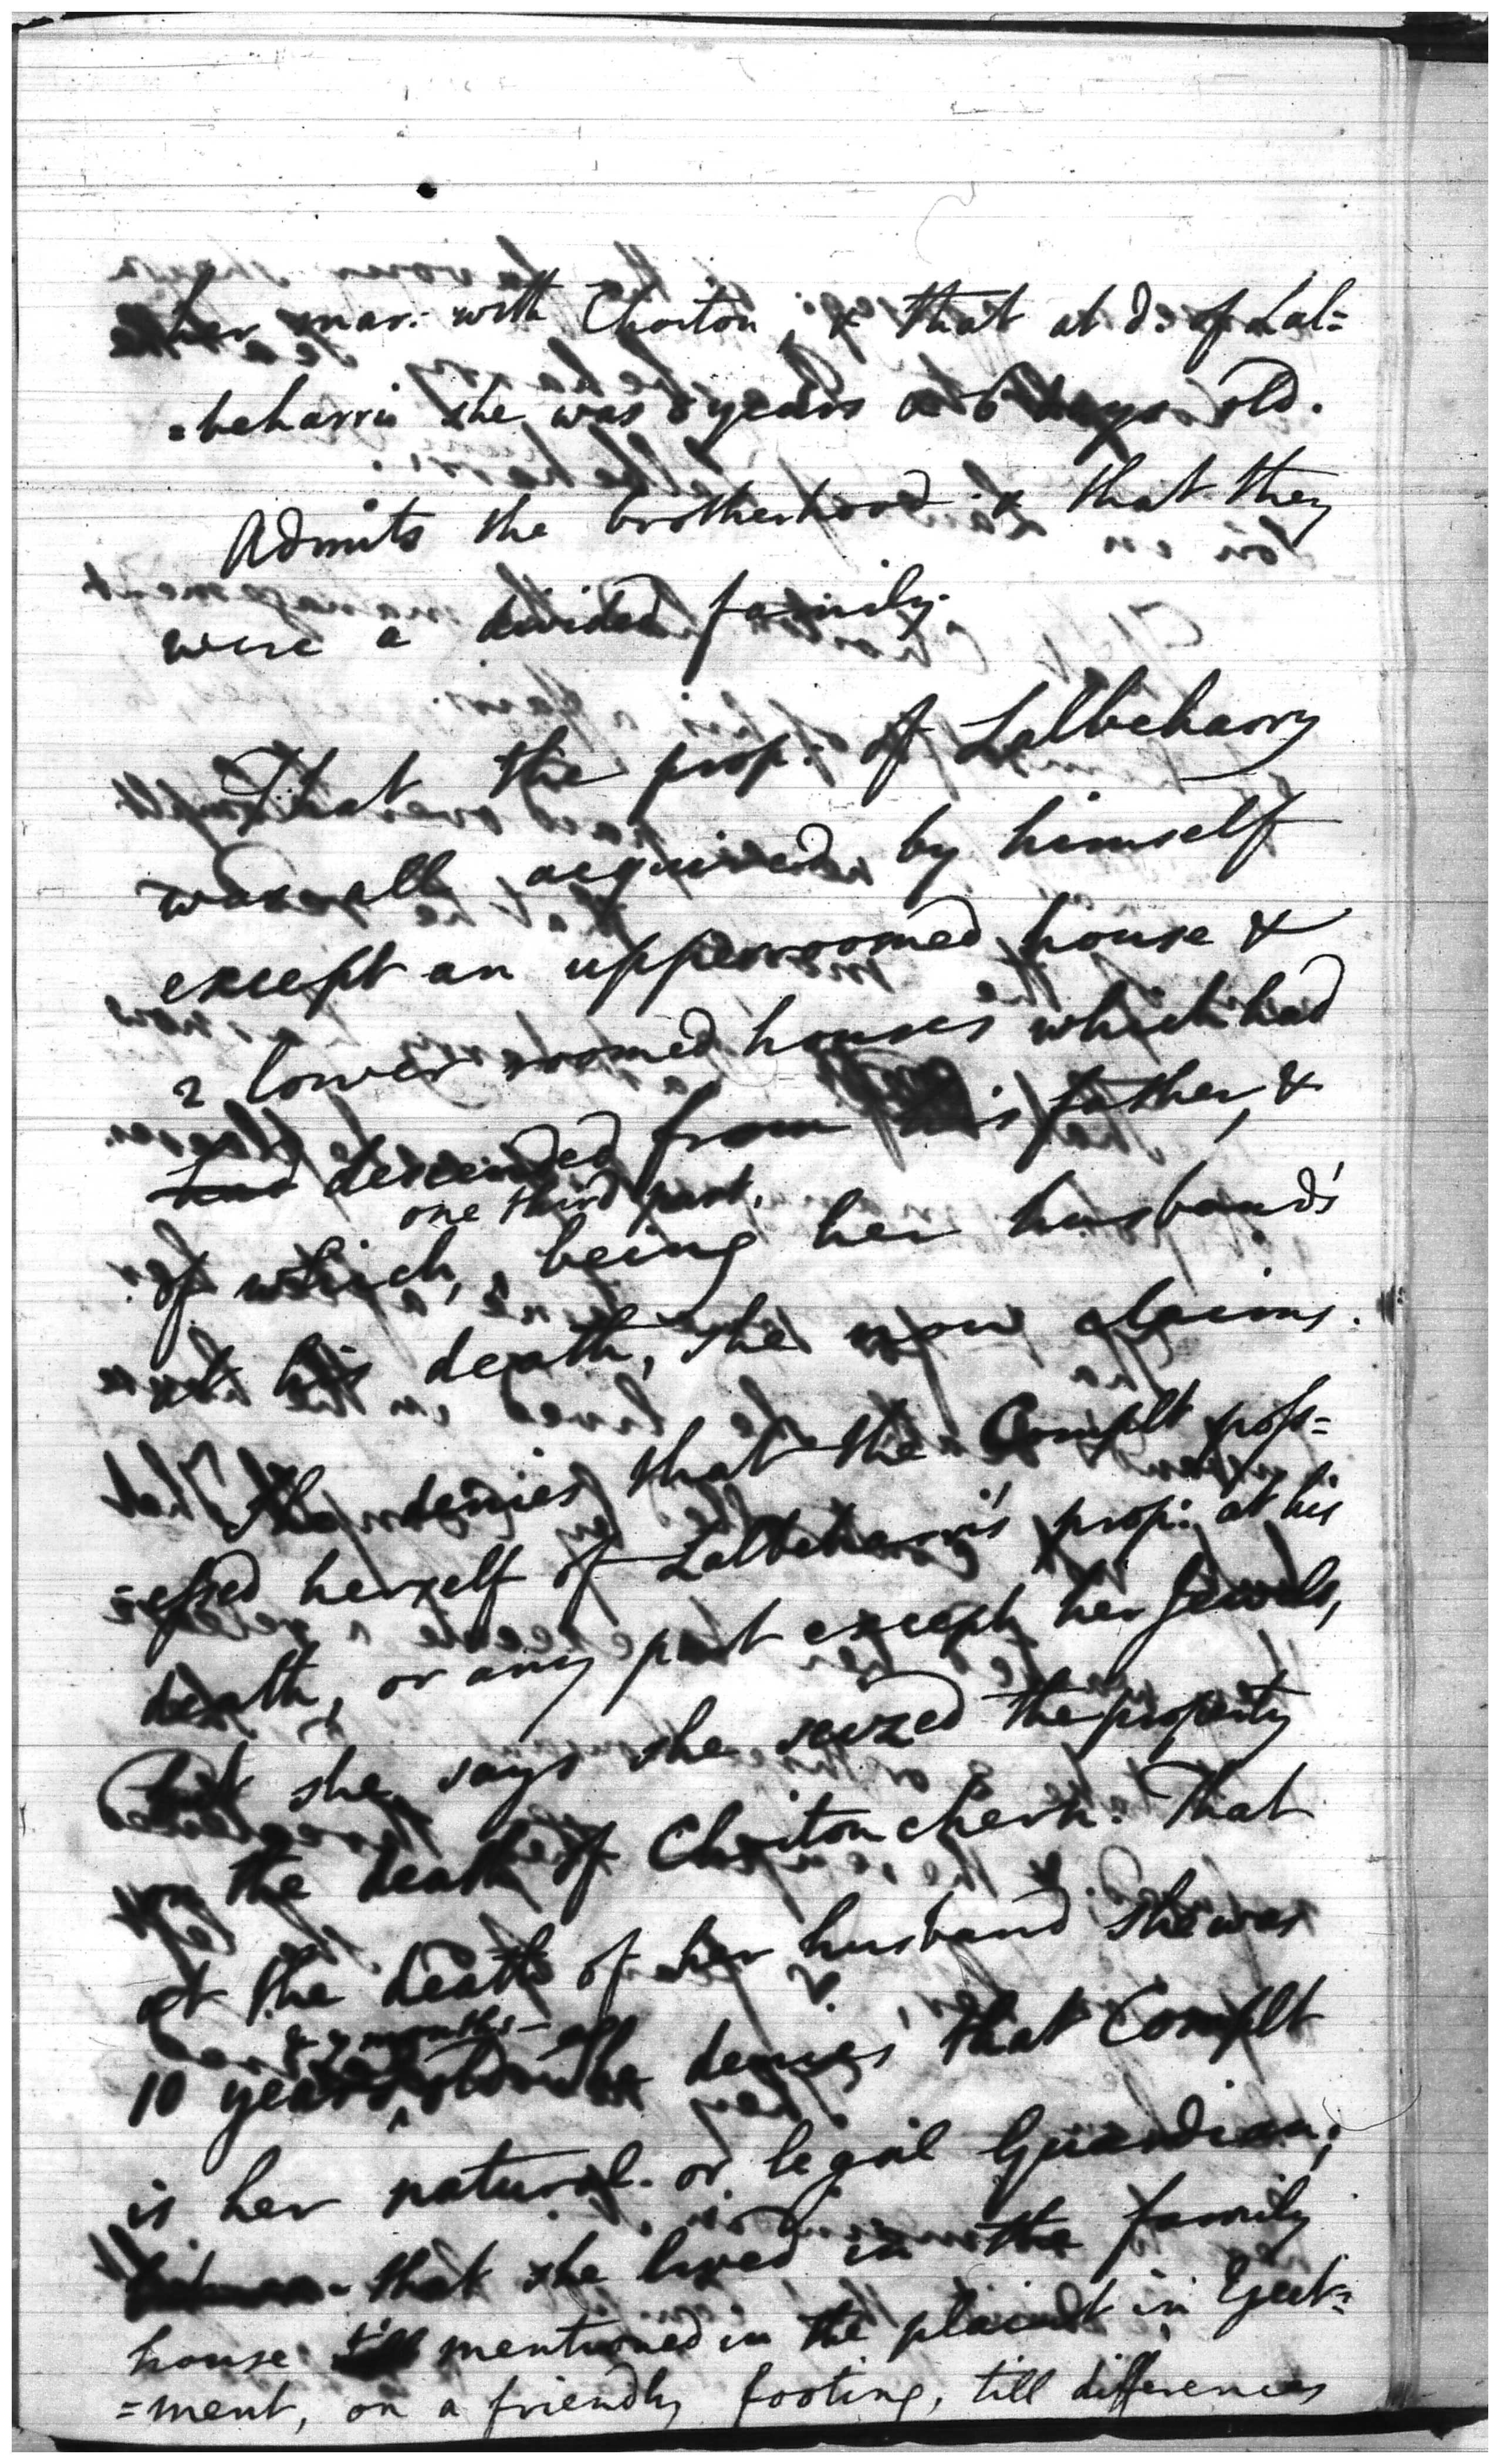 her mar: with Choiton, & that at d: of Lal=
=beharris she was 8 years & 6 days old.
Admits the brotherhood & that they
were a divided family.
That the prop: of Lallbeharry
was all acquired by himself
except an upperroomed house &
2 lower roomed houses which had
had descended from his father, &
one third part.
of which, being her husband's
at his death, she now claims.
She denies that the Complt poss=
=essed herself of Lalbeharri's prop: at his
death, or any part except her Jewels,
But she says she seized the property
on the death of Choiton chern. That
at the death of her husband she was
& 7 months
10 years old denies that Complt
is her natural or legal Guardian;
that she lived in the family
house mentioned in the plaint in Eject=
=ment, on a friendly footing, till differences